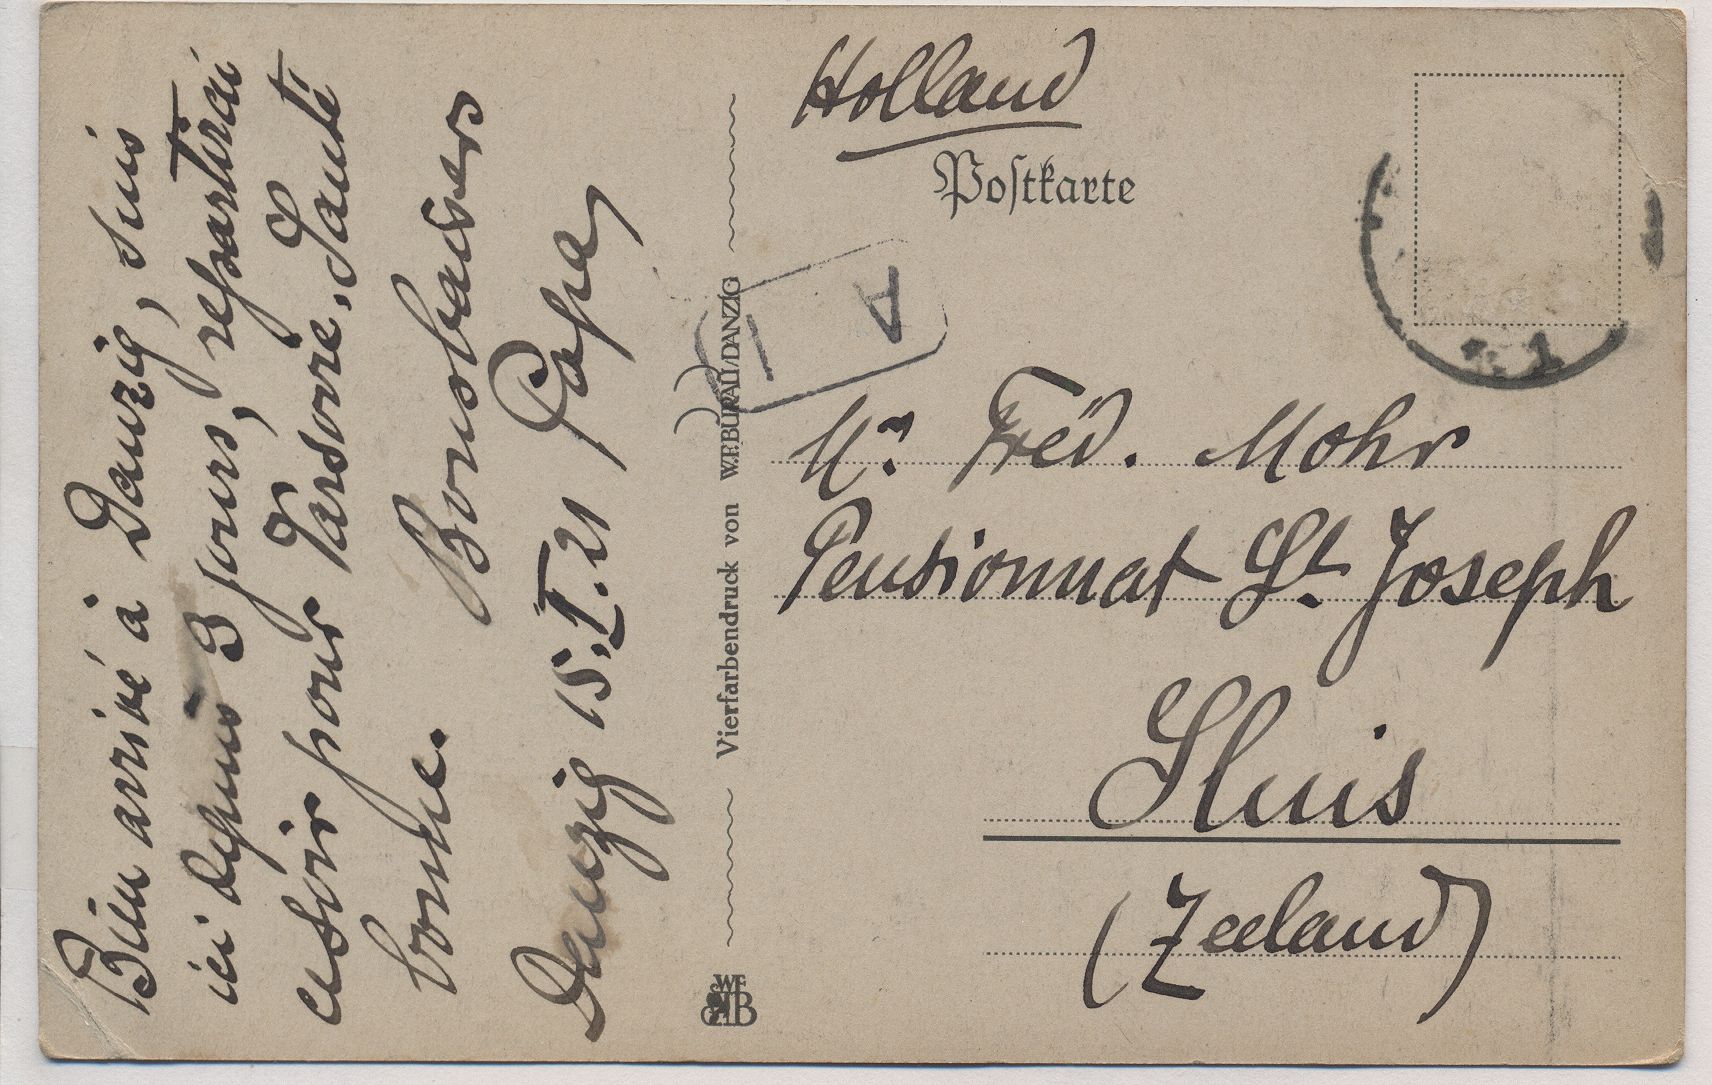 Bien arrivé à Danzig, suis
ici depuis 3 jours, repartirai
ce soir pour Varsovie. Santé
bonne.
Bons baisers
Papa
Danzig 15.I.21
Vierfarbendruck von W.F. BURAU, DANZIG
Holland
Postkarte
A
1
Mr Fréd. Mohr
Pensionnat St. Joseph
Sluis
(Zeeland)